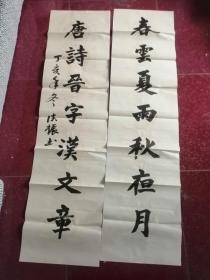 春雲夏雨秋夜月
唐詩晉字漢文章
丁亥年冬